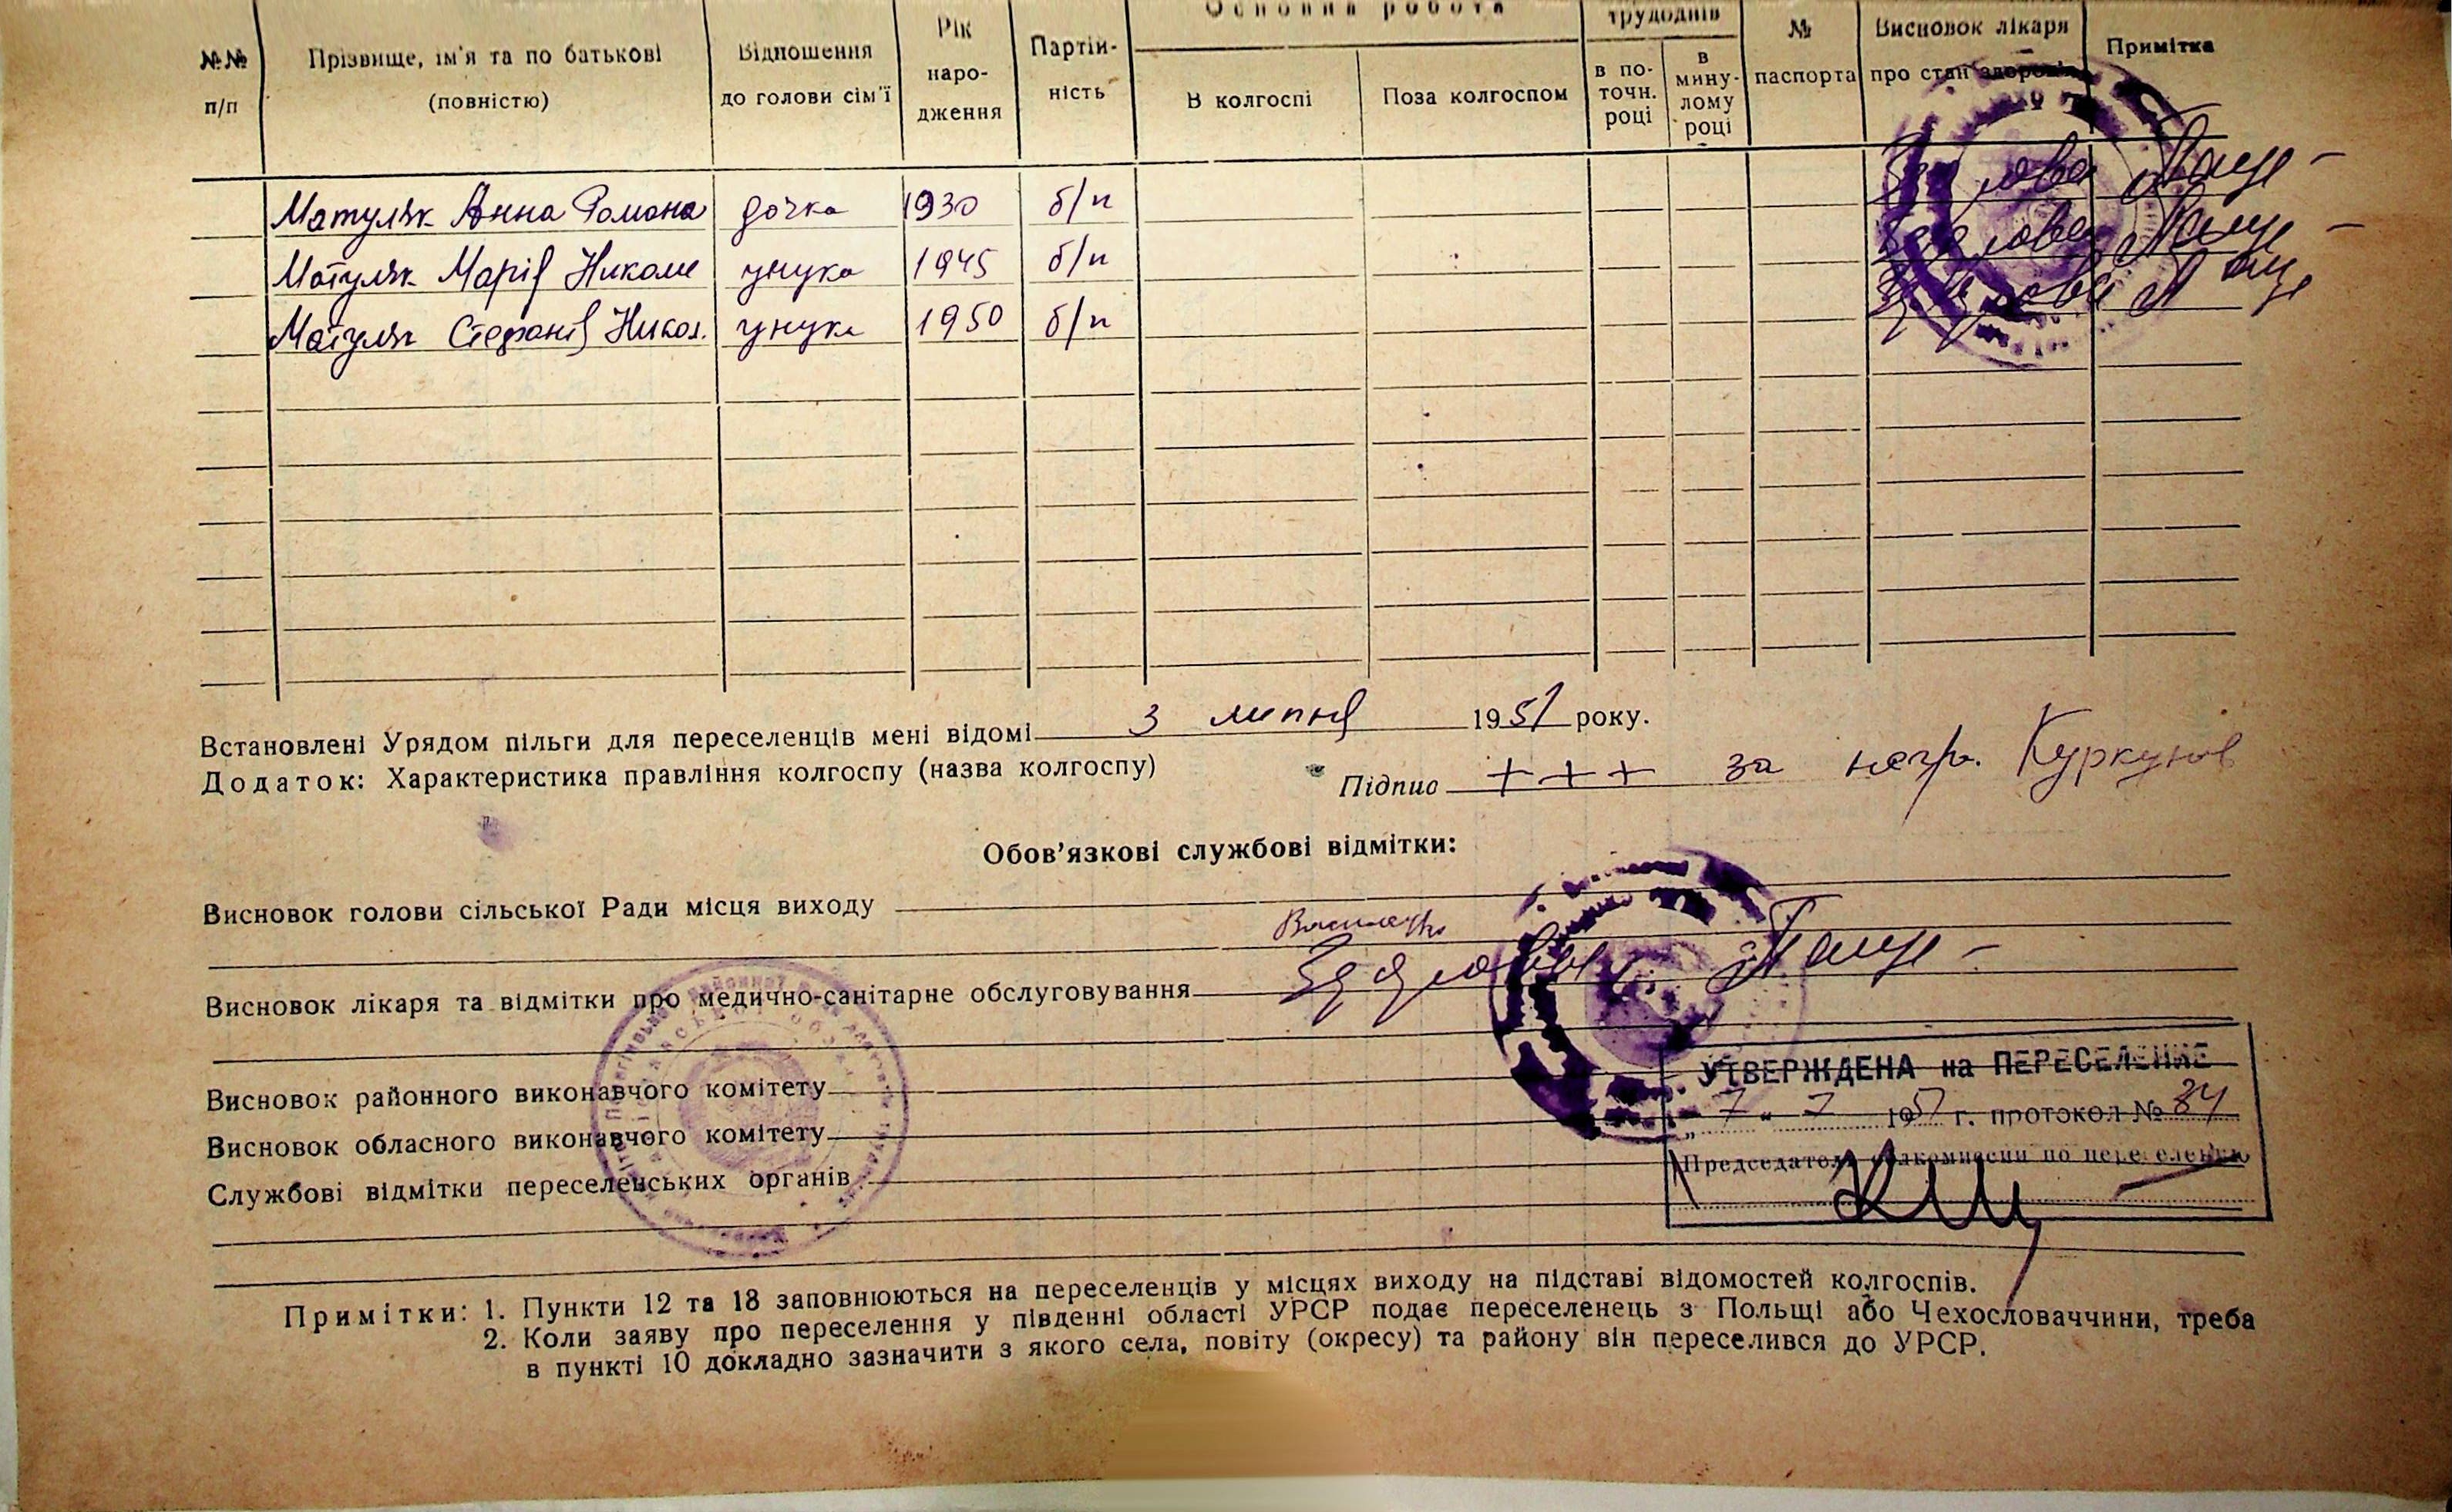 Основна робота трудоднів
№№ п/п Прізвище, ім'я та по батькові (повністю) Відношення до голови сім'ї Рік народження Партійність В колгоспі Поза колгоспом в поточн. році в минулому році № паспорта Висновок лікаря про стан здоров'я Примітка
Матуляк Анна Романа дочка 1930 б/п Здорова
Матуляк Марія Николи унука 1945 б/п Здорова
Матуляк Стефанія Никол. унука 1950 б/п Здорова
Встановлені Урядом пільги для переселенців мені відомі 3 липня 1951 року.
Додаток: Характеристика правління колгоспу (назва колгоспу)
Підпис + + + за негр.
Обов'язкові службові відмітки:
Висновок голови сільської Ради місця виходу
Висновок лікаря та відмітки про медично-санітарне обслуговування Здорові
Висновок районного виконавчого комітету
Висновок обласного виконавчого комітету
Службові відмітки переселенських органів
УТВЕРЖДЕНА на ПЕРЕСЕЛЕНИЕ
„ 7 “ 7 1951 г. протокол № 34
Председатель облкомиссии по переселению
Примітки: 1. Пункти 12 та 18 заповнюються на переселенців у місцях виходу на підставі відомостей колгоспів.
2. Коли заяву про переселення у південні області УРСР подає переселенець з Польщі або Чехословаччини, треба
в пункті 10 докладно зазначити з якого села, повіту (окресу) та району він переселився до УРСР.